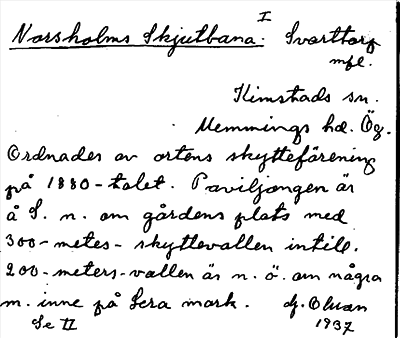 Norsholms Skjutbana. I Svarttorp
mfl.
Kimstads sn.
Memmings hd. Ög.
Ordnades av ortens skytteförening
på 1880-talet. Paviljongen är
å S. n. om gårdens plats med
300-metes- skyttevallen intill.
200-meters-vallen är n. ö. om några
m. inne på Sera mark. dj.
Se II 1937